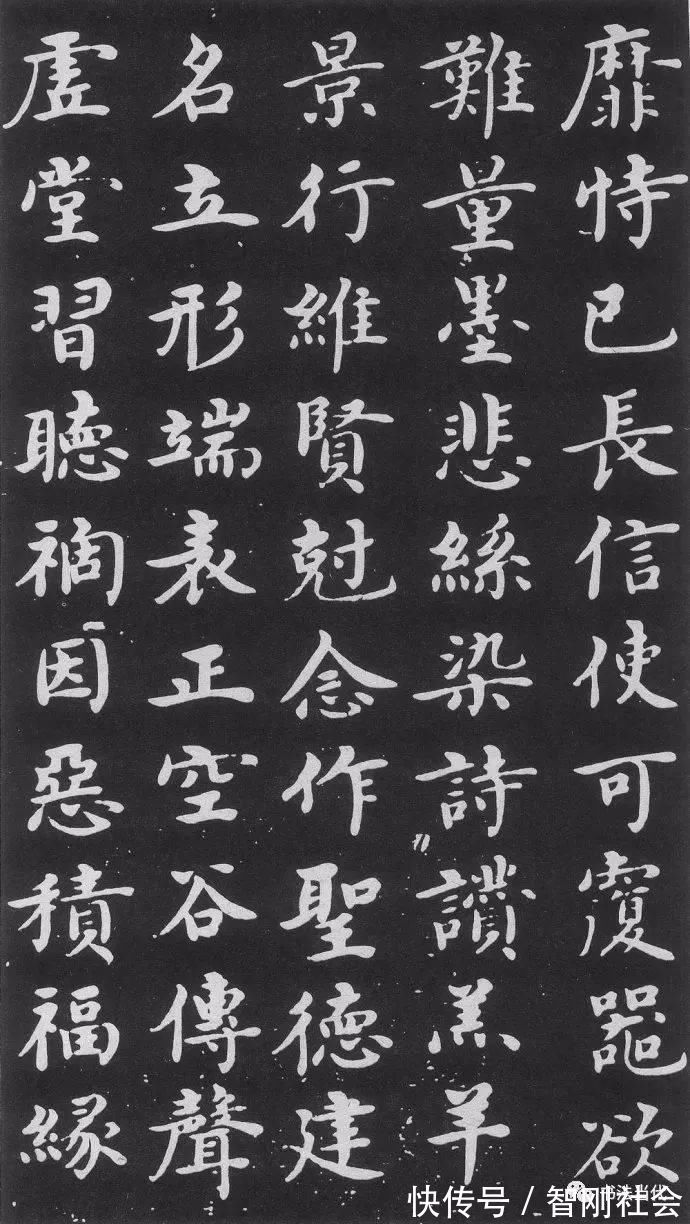 靡恃己長信使可覆器欲
難量墨悲絲染詩讚羔羊
景行維賢尅念作聖德建
名立形端表正空谷傳聲
虚堂習聽禍因惡積福緣
书法当代
快传号/智刚社会